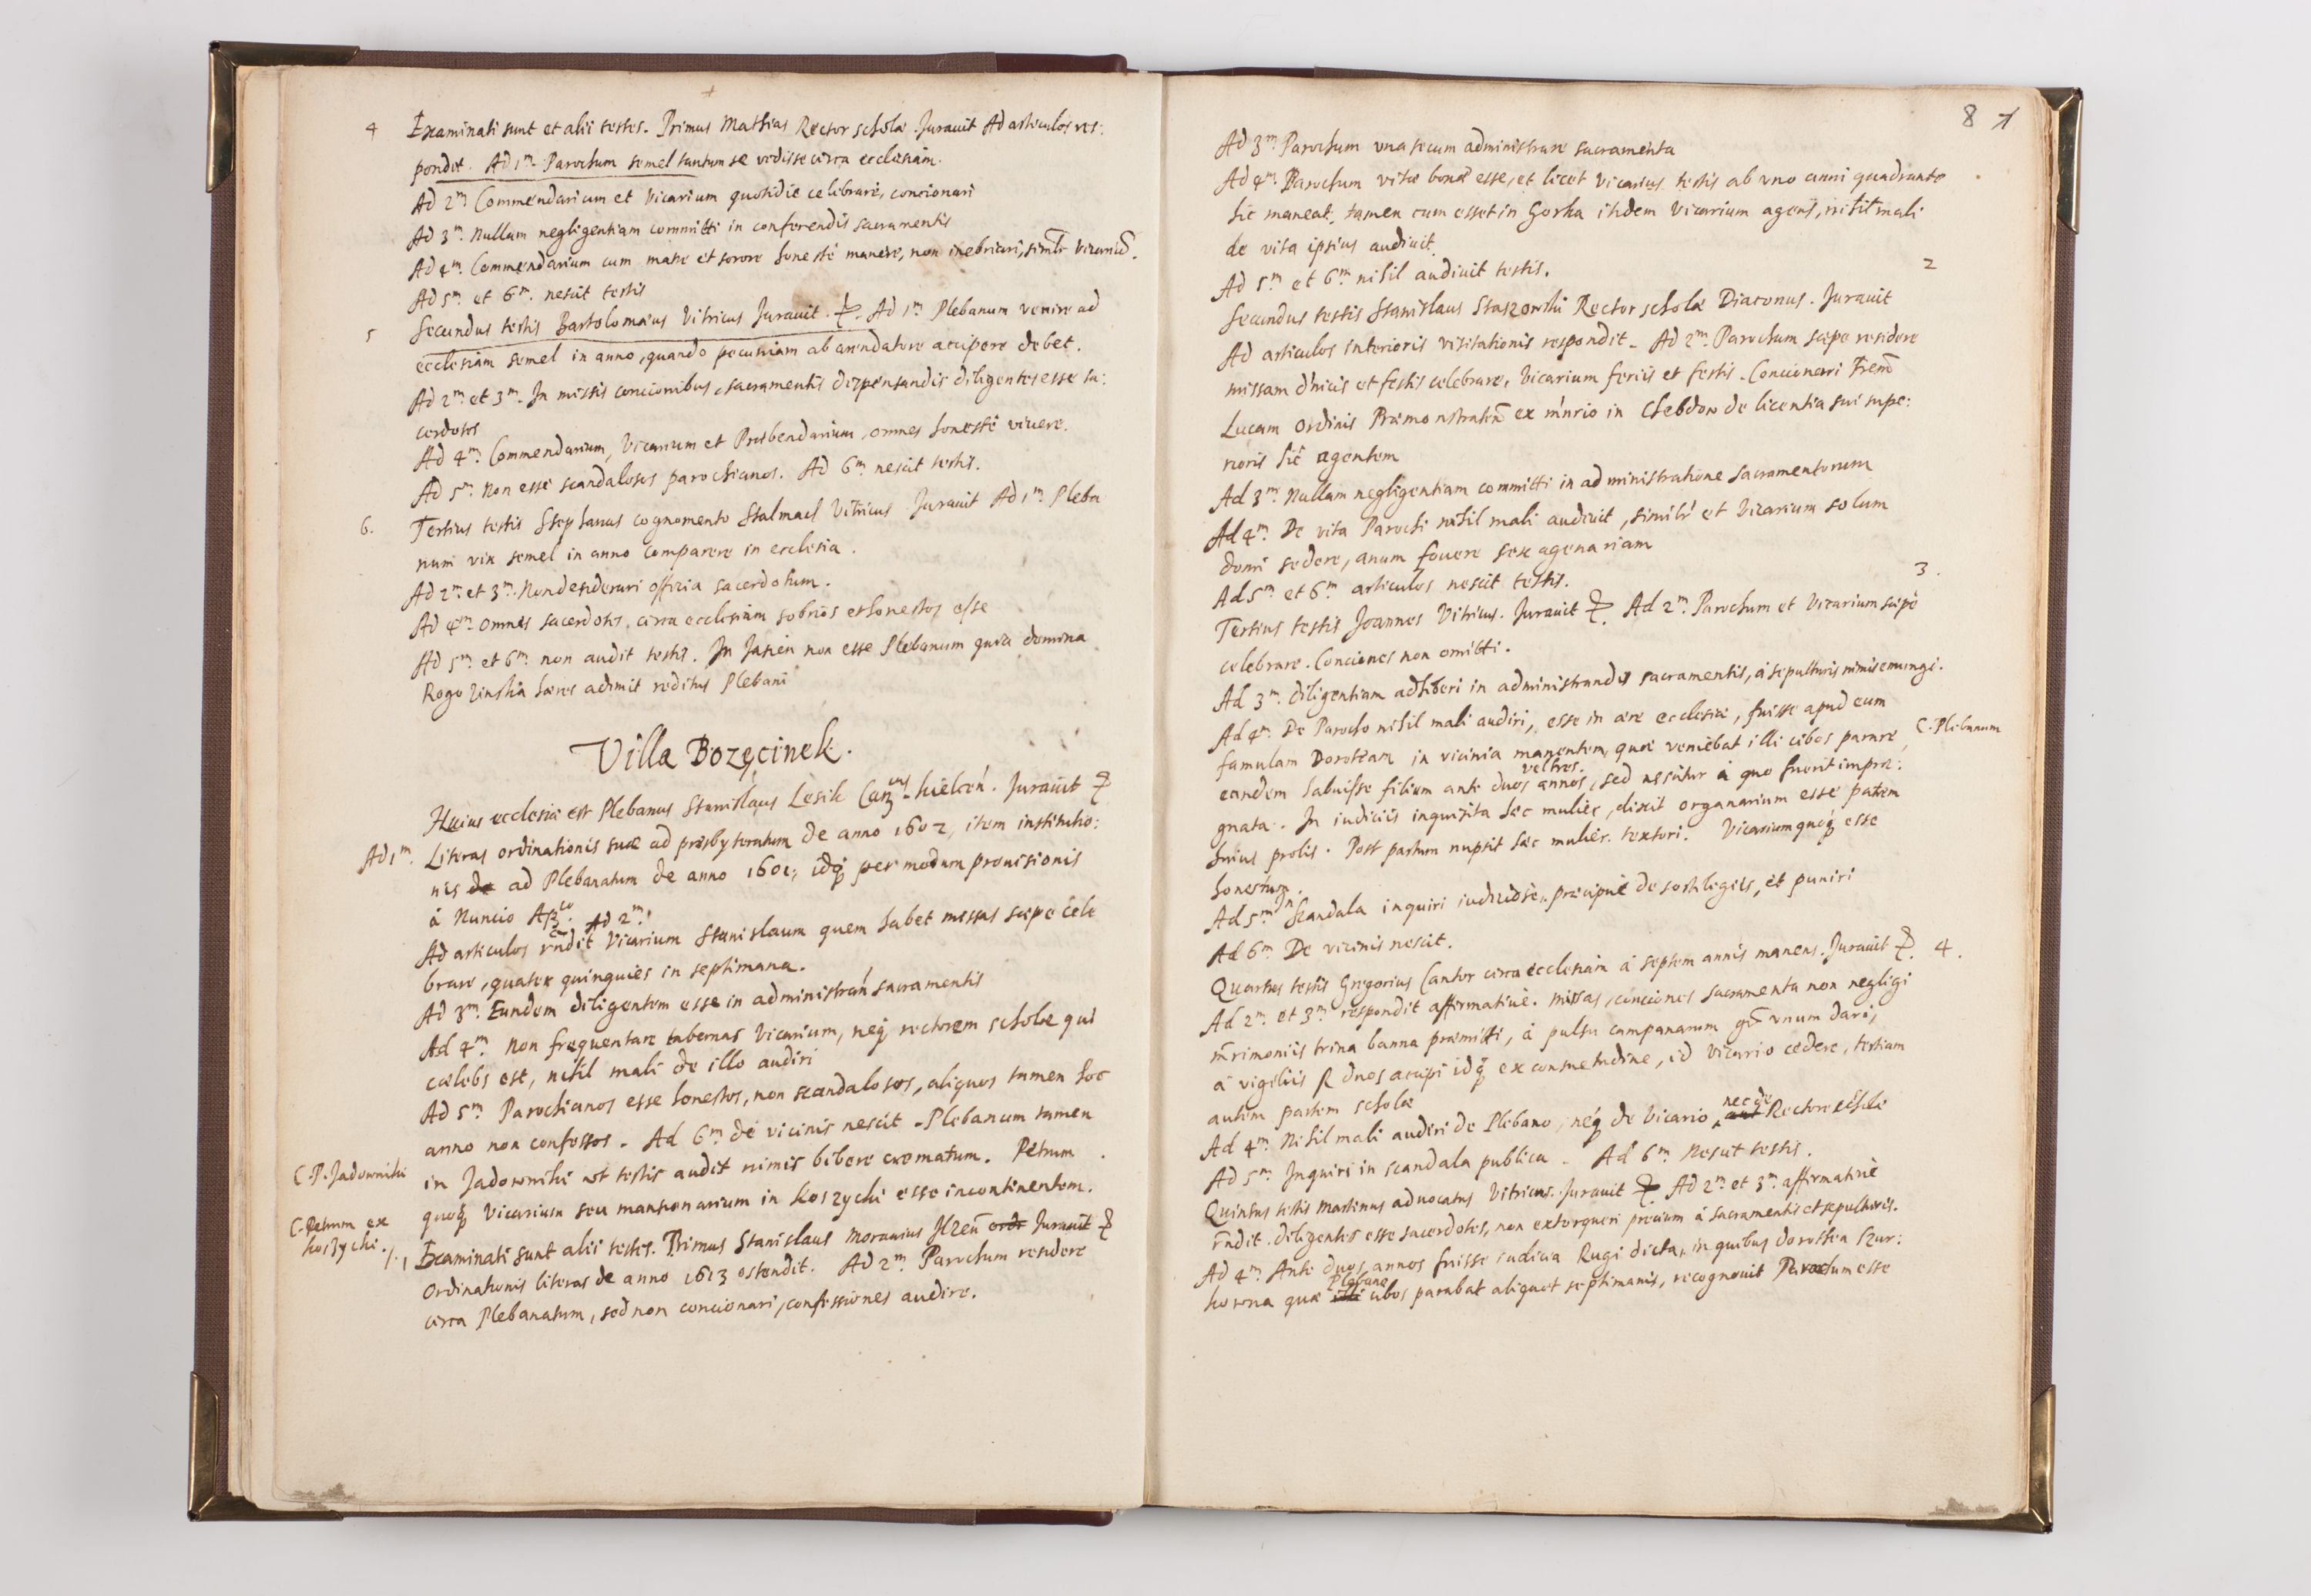 4 Examinati sunt et alii testes. Primus Mathias Rector scholæ Jurauit Ad articulos res:
pondit. Ad 1m Parochum semel tantum se vidisse circa ecclesiam.
Ad 2m Commendarium et Vicarium quotidie celebrare, concionari
Ad 3m. Nullam negligentiam committi in conferendis sacramentis
Ad 4m. Commendarium cum matre et sorore honestè manere, non inebriari, similr Vicariũ.
Ad 5m et 6m. nescit testis
5 Secundus testis Bartolomæus Vitricus Jurauit. Ad 1m Plebanum venire ad
ecclesiam semel in anno, quando pecuniam ab arendatore accipere debet.
Ad 2m et 3m. In missis concionibus, sacramentis dispensandis diligentes esse sa:
cerdotes
Ad 4m. Commendarium, Vicarium et Præbendarium, omnes honestè viuere.
Ad 5m Non esse scandalosos parochianos. Ad 6m nescit testis.
6. Tertius testis Stephanus cognomento Stalmach Vitricus Jurauit Ad 1m Pleba
num vix semel in anno comparere in ecclesia.
Ad 2m et 3m. Non desiderari officia sacerdotum.
Ad 4m omnes sacerdotes, circa ecclesiam sobrios et honestos esse
Ad 5m et 6m non audit testis. In Jasień non esse Plebanum quia domina
Rogo hæres adimit reditus Plebani
Villa Bozęcinek.
Huius ecclesiæ est Plebanus Stanislaus Lesik Canus Kielceń. Jurauit
Ad 1m. Literas ordinationis suæ ad præsbyteratum de anno 1602, item institutio:
nis de ad Plebanatum de anno 1601, idq per modum prouisionis
à Nuncio Aplco.
Ad articulos rndit Ad 2m. Vicarium Stanislaum quem habet missas sæpe cele
brare, quater quinquies in septimana.
Ad 3m. Eundem diligentem esse in administrań sacramentis
Ad 4m. Non frequentare tabernas Vicarium, neq rectorem scholæ qui
cælebs est, nihil mali de illo audiri
Ad 5m. Parochianos esse honestos, non scandalosos, aliquos tamen hoc
anno non confessos. Ad 6m de vicinis nescit. Plebanum tamen
C. P. Jadowniki in Jadowniki vt testis audit nimis bibere crematum. Petrum
C. Petrum ex quoq Vicarium seu mansionarium in Koszycki esse incontinentem.
Koszycki. 1 Examinati sunt alii testes. Primus Stanislaus Morauius Jurauit
Ordinationis literas de anno 1613 ostendit. Ad 2m Parochum residere
circa Plebanatum, sed non concionari, confessiones audire.
8 1
Ad 3m Parochum vna secum administrare sacramenta
Ad 4m. Parochum vitæ bonæ esse, et licet Vicarius testis ab vno anni quadrante
hic maneat, tamen cum esset in Gorka itidem Vicarium agens, nihil mali
de vita ipsius audiuit.
Ad 5m et 6m nihil audiuit testis. 2
Secundus testis Stanislaus Staszowski Rector scholæ Diaconus. Jurauit
Ad articulos interioris visitationis respondit. Ad 2m. Parochum sæpe residere
missam dnicis et festis celebrare, Vicarium feriis et festis. Concionari Frem
Lucam Ordinis Præmonstrateñ ex mnrio in Chebdow de licentia sui supe:
rioris hic agentem
Ad 3m. Nullam negligentiam committi in administratione sacramentorum
Ad 4m. De vita Parochi nihil mali audiuit, similr et Vicarium solum
domi sedere, anum fouere sexagenariam
Ad 5m et 6m articulos nescit testis. 3.
Tertius testis Joannes Vitricus. Jurauit. Ad 2m. Parochum et Vicarium sæpè
celebrare. Conciones non omitti.
Ad 3m. diligentiam adhiberi in administrandis sacramentis, à sepulturis nimis emungi.
Ad 4m. De Parocho nihil mali audiri, esse in ære ecclesiæ, fuisse apud eum C. Plebanum
famulam Doroteam in vicinia manentem, quæ veniebat illi cibos parare
eandem habuisse filium ante duos vel tres annos, sed nescitur à quo fuerit impræ:
gnata. In iudiciis inquisita hæc mulier, dixit organarium esse patrem
huius prolis. Post partum nupsit hæc mulier textori. Vicarium quoq esse
honestum.
Ad 5m In Scandala inquiri iudiciosè, præcipuè de sortilegiis, et puniri
Ad 6m De vicinis nescit.
Quartus testis Gregorius Cantor circa ecclesiam à septem annis manens. Jurauit. 4.
Ad 2m. et 3m respondit affirmatiuè. Missas, conciones sacramenta non negligi
mrimoniis trina banna præmitti, à pulsu campanarum gr vnum dari,
à vigiliis duos accipi idq ex consuetudine, id Vicario cedere, tertiam
autem partem scholæ
Ad 4m. Nihil mali audiri de Plebano, neq de Vicario, aut nec de Rectore scholæ
Ad 5m Inquiri in scandala publica. Ad 6m Nescit testis.
Quintus testis Martinus aduocatus Vitricus. Jurauit Ad 2m et 3m affirmatiuè
rndit. diligentes esse sacerdotes, non extorqueri precium à sacramentis et sepulturis.
Ad 4m. Ante duos annos fuisse iudicia Rugi dicta, in quibus Dorothea Szur:
kowna quæ illi Plebano cibos parabat aliquot septimanis, recognouit Parochum esse